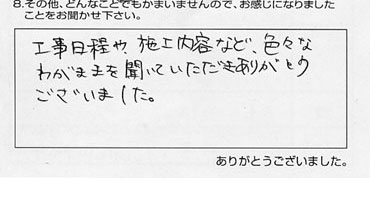 8.その他、どんなことでもかまいませんので、お感じになりました
ことをお聞かせ下さい。
工事日程や、施工内容など、色々な
わがままを聞いていただきありがとう
ございました。
ありがとうございました。